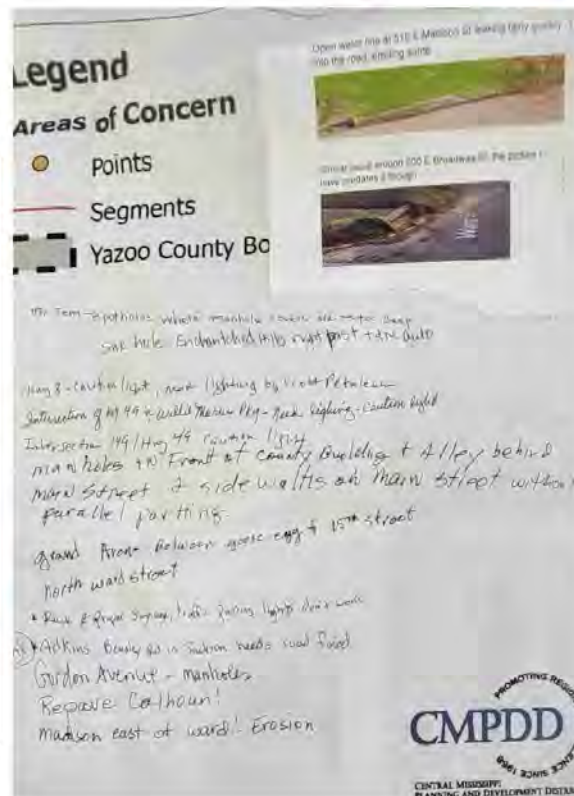 Legend
Areas of Concern
Points
Segments
Yazoo County Bo
Open water line at 510 E Madison St leaking fairly quickly
into the road, eroding some
Similar issue around 600 E Broadway St, the picture I
have predates it though
potholes where manhole covers are too deep
sink hole Enchanted Hills right past auto
Hwy 3 - Caution light, need lighting by Petroleum
Intersection of Hwy 49 & Willie Morris Pkwy - Need lighting - Caution light
Intersection 149/Hwy 49 caution light
manholes in Front of County Building & Alley behind
Main Street & sidewalks on Main Street within
parallel parking
grand Avenue Between goose egg & 15th street
north ward street
signage, traffic lights don't work
Adkins in needs road fixed
Gordon Avenue - manholes
Repave Calhoun!
Madison east of ward! Erosion
PROMOTING REGI
CMPDD
LENCE SINCE 1968
CENTRAL MISSISSIPPI
PLANNING AND DEVELOPMENT DISTRI